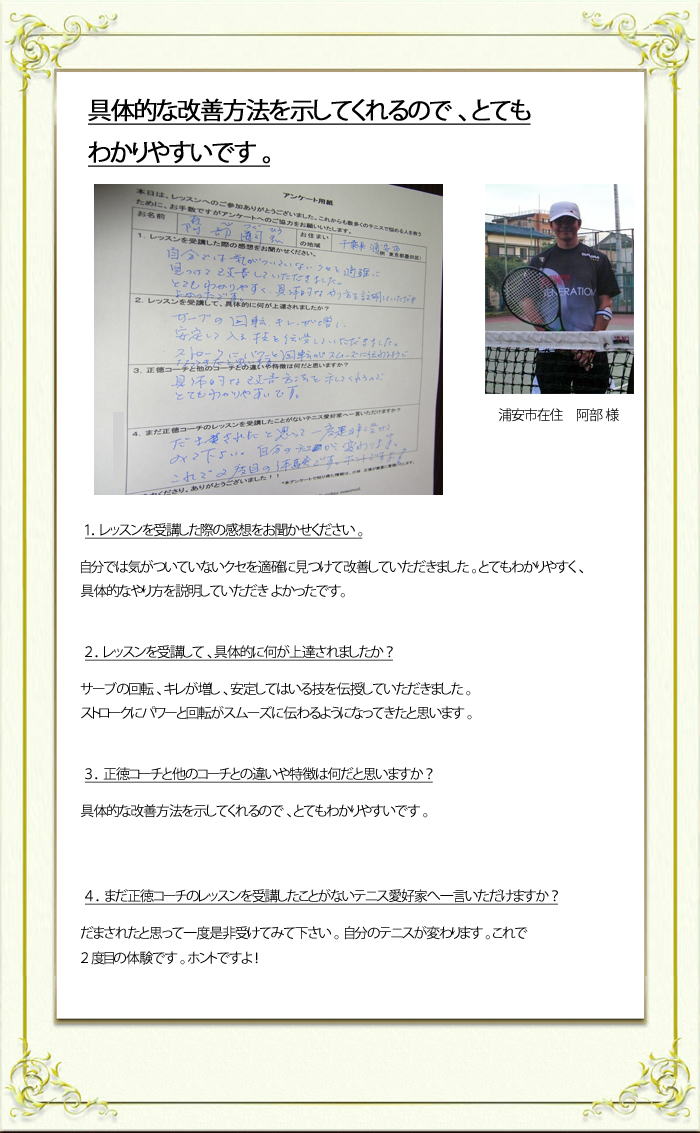 具体的な改善方法を示してくれるので、とても
わかりやすいです。
アンケート用紙
本日は、レッスンへのご参加ありがとうございました。これからも数多くのテニスで悩める人を救う
ために、お手数ですがアンケートへのご協力をお願いいたします。
お名前
阿部
お住まい
の地域
千葉県 浦安市
(例 東京都墨田区)
1. レッスンを受講した際の感想をお聞かせください。
自分では気がついていないクセを適確に
見つけて改善していただきました。
とてもわかりやすく、具体的なやり方を説明していただき
よかったです。
2. レッスンを受講して、具体的に何が上達されましたか?
サーブの回転、キレが増し、
安定して入る技を伝授していただきました。
ストロークにパワーと回転がスムーズに伝わるように
なってきたと思います。
3. 正徳コーチと他のコーチとの違いや特徴は何だと思いますか?
具体的な改善方法を示してくれるので
とてもわかりやすいです。
4. まだ正徳コーチのレッスンを受講したことがないテニス愛好家へ一言いただけますか?
だまされたと思って一度是非受けて
みて下さい。自分のテニスが変わります。
これで2度目の体験です。ホントですよ!
ありがとうございました!!
GENERATION
浦安市在住 阿部 様
1. レッスンを受講した際の感想をお聞かせください。
自分では気がついていないクセを適確に見つけて改善していただきました。とてもわかりやすく、
具体的なやり方を説明していただき よかったです。
2. レッスンを受講して、具体的に何が上達されましたか?
サーブの回転、キレが増し、安定してはいる技を伝授していただきました。
ストロークにパワーと回転がスムーズに伝わるようになってきたと思います。
3. 正徳コーチと他のコーチとの違いや特徴は何だと思いますか?
具体的な改善方法を示してくれるので、とてもわかりやすいです。
4. まだ正徳コーチのレッスンを受講したことがないテニス愛好家へ一言いただけますか?
だまされたと思って一度是非受けてみて下さい。自分のテニスが変わります。これで
2度目の体験です。ホントですよ!